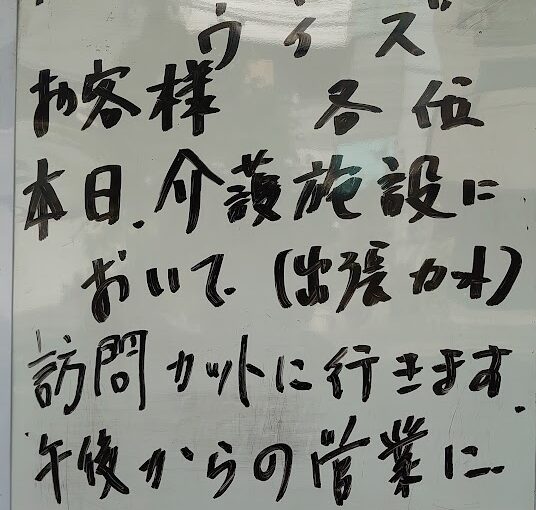 ウィズ
お客様 各位
本日、介護施設に
おいて（出張カット）
訪問カットに行きます。
午後からの営業に